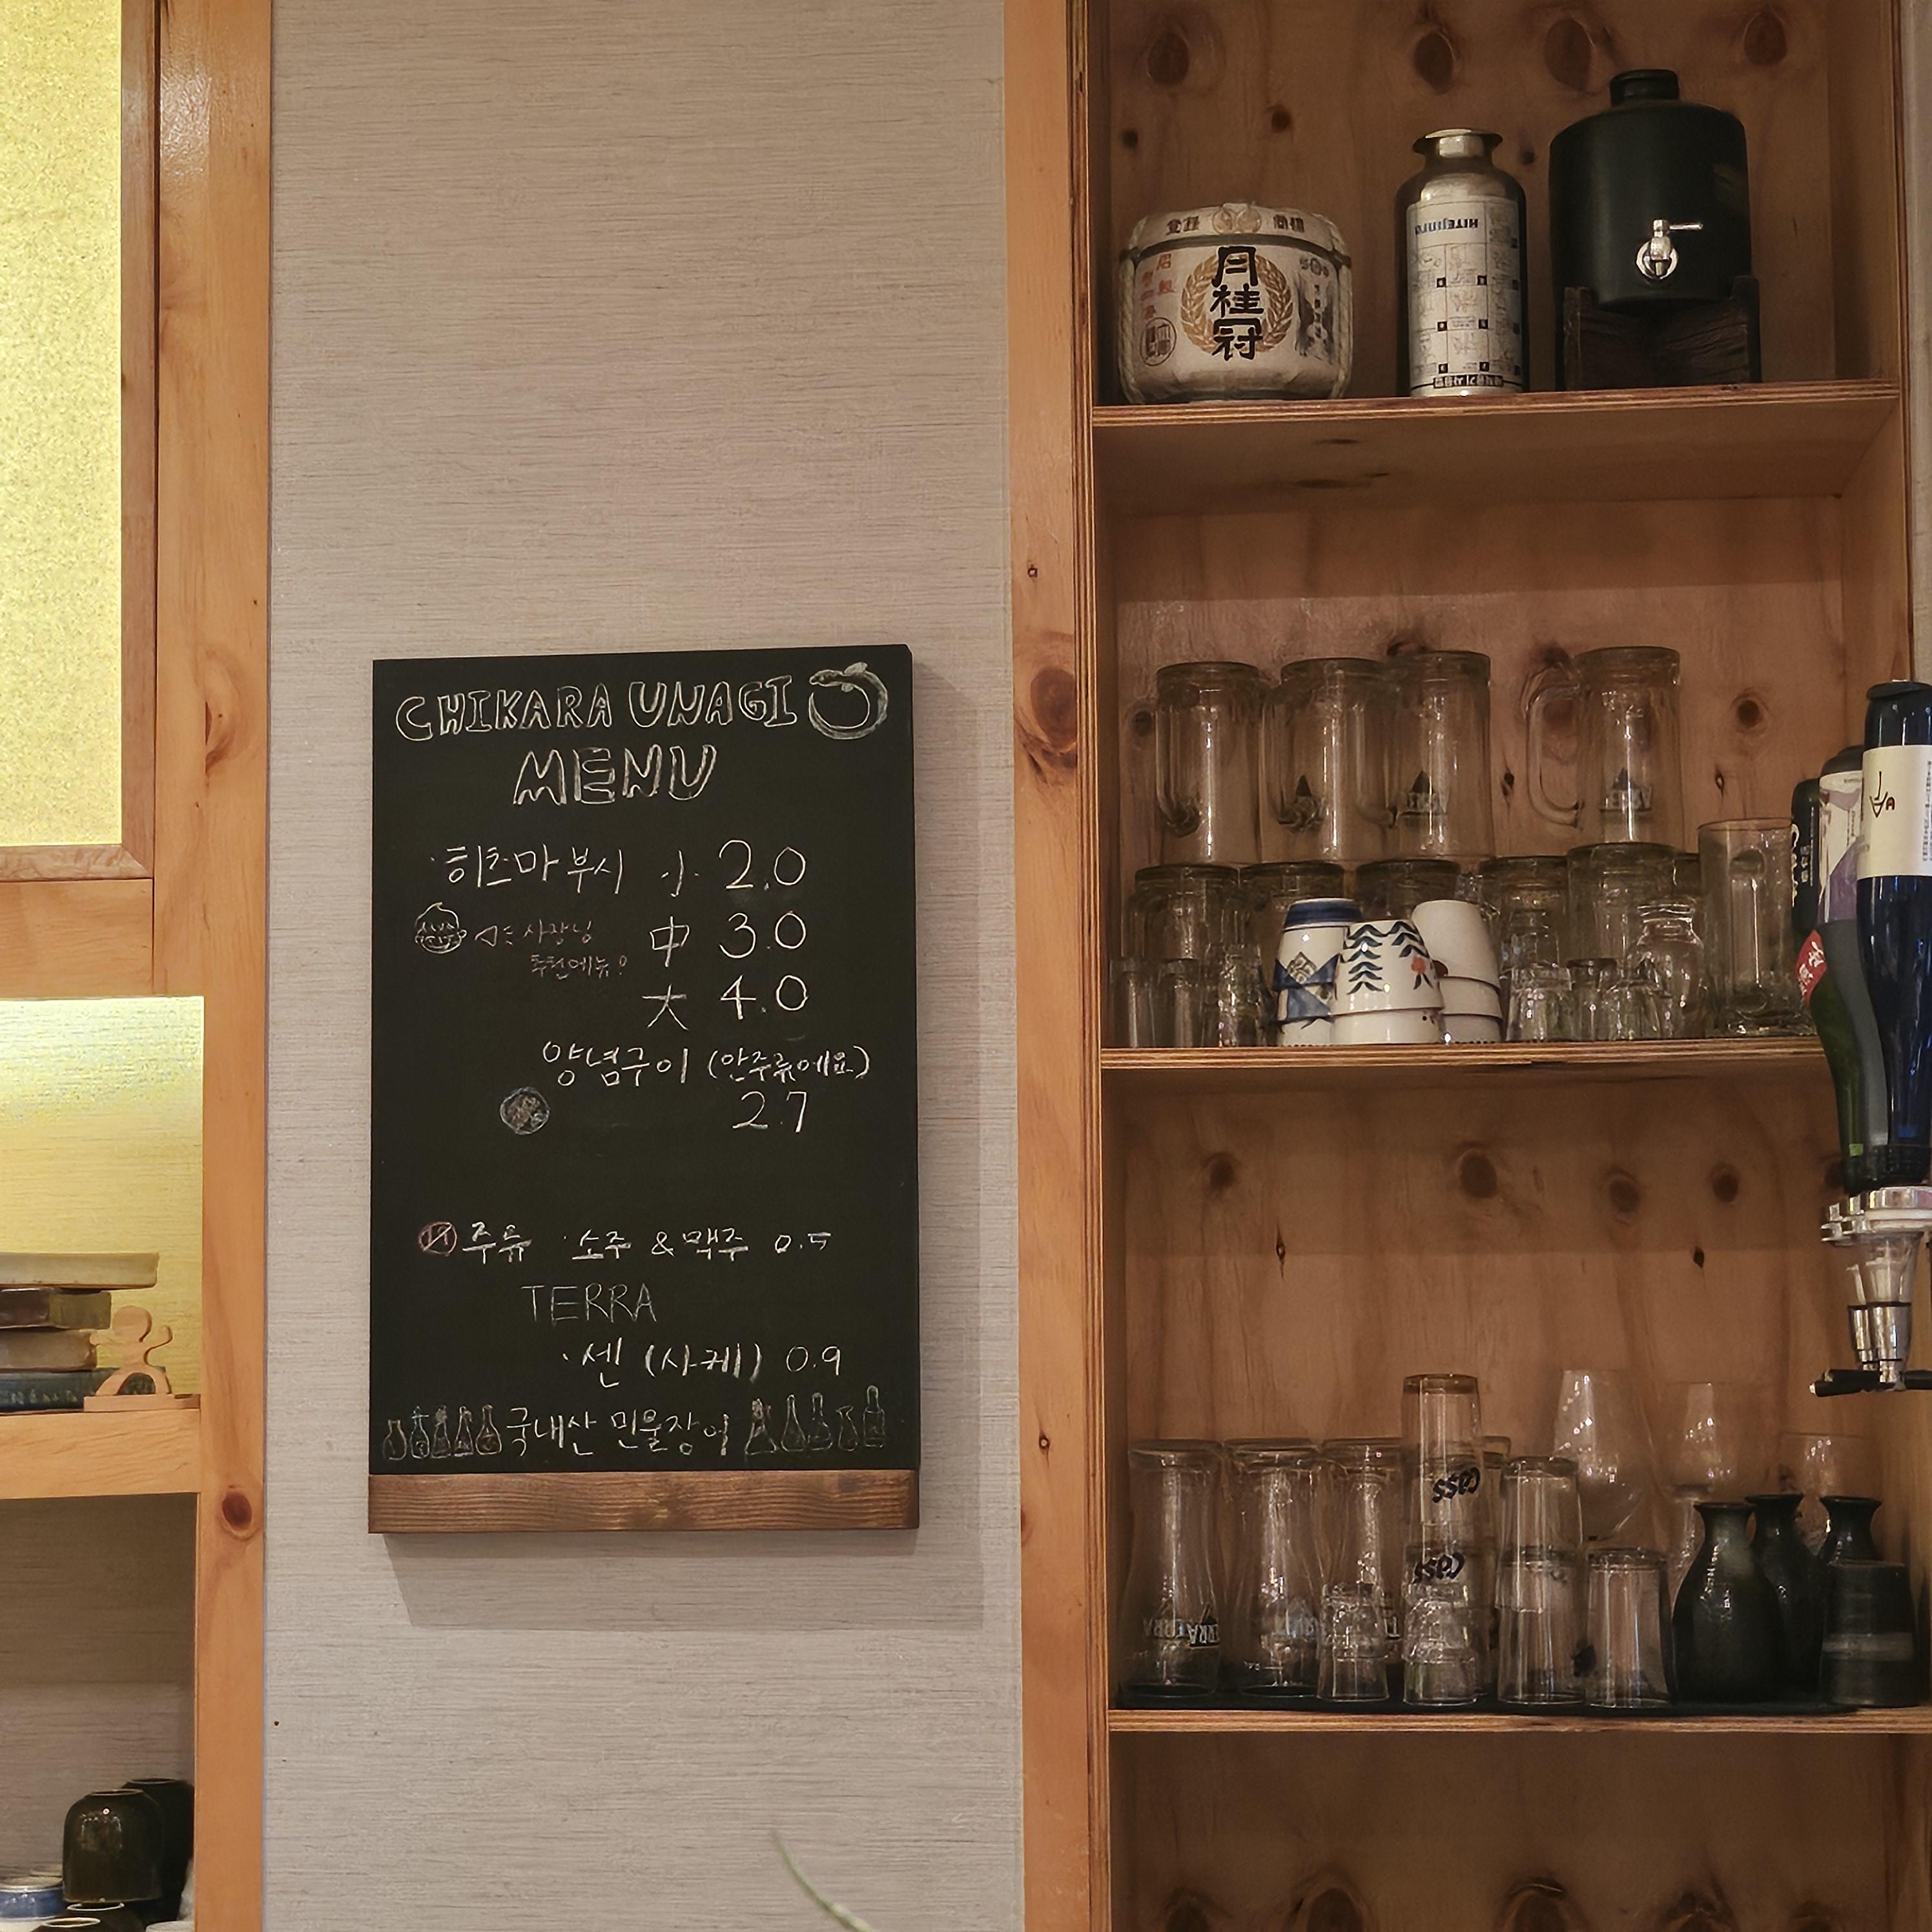 CHIKARA UNAGI
MENU
·히츠마부시 小 2.0
사장님 中 3.0
추천메뉴?
大 4.0
양념구이 (안주류에요)
2.7
주류 ·소주 & 맥주 0.5
TERRA
·센 (사케) 0.9
국내산 민물장어
月桂冠
HITEJINRO
TERRA
cass
cass
TERRA